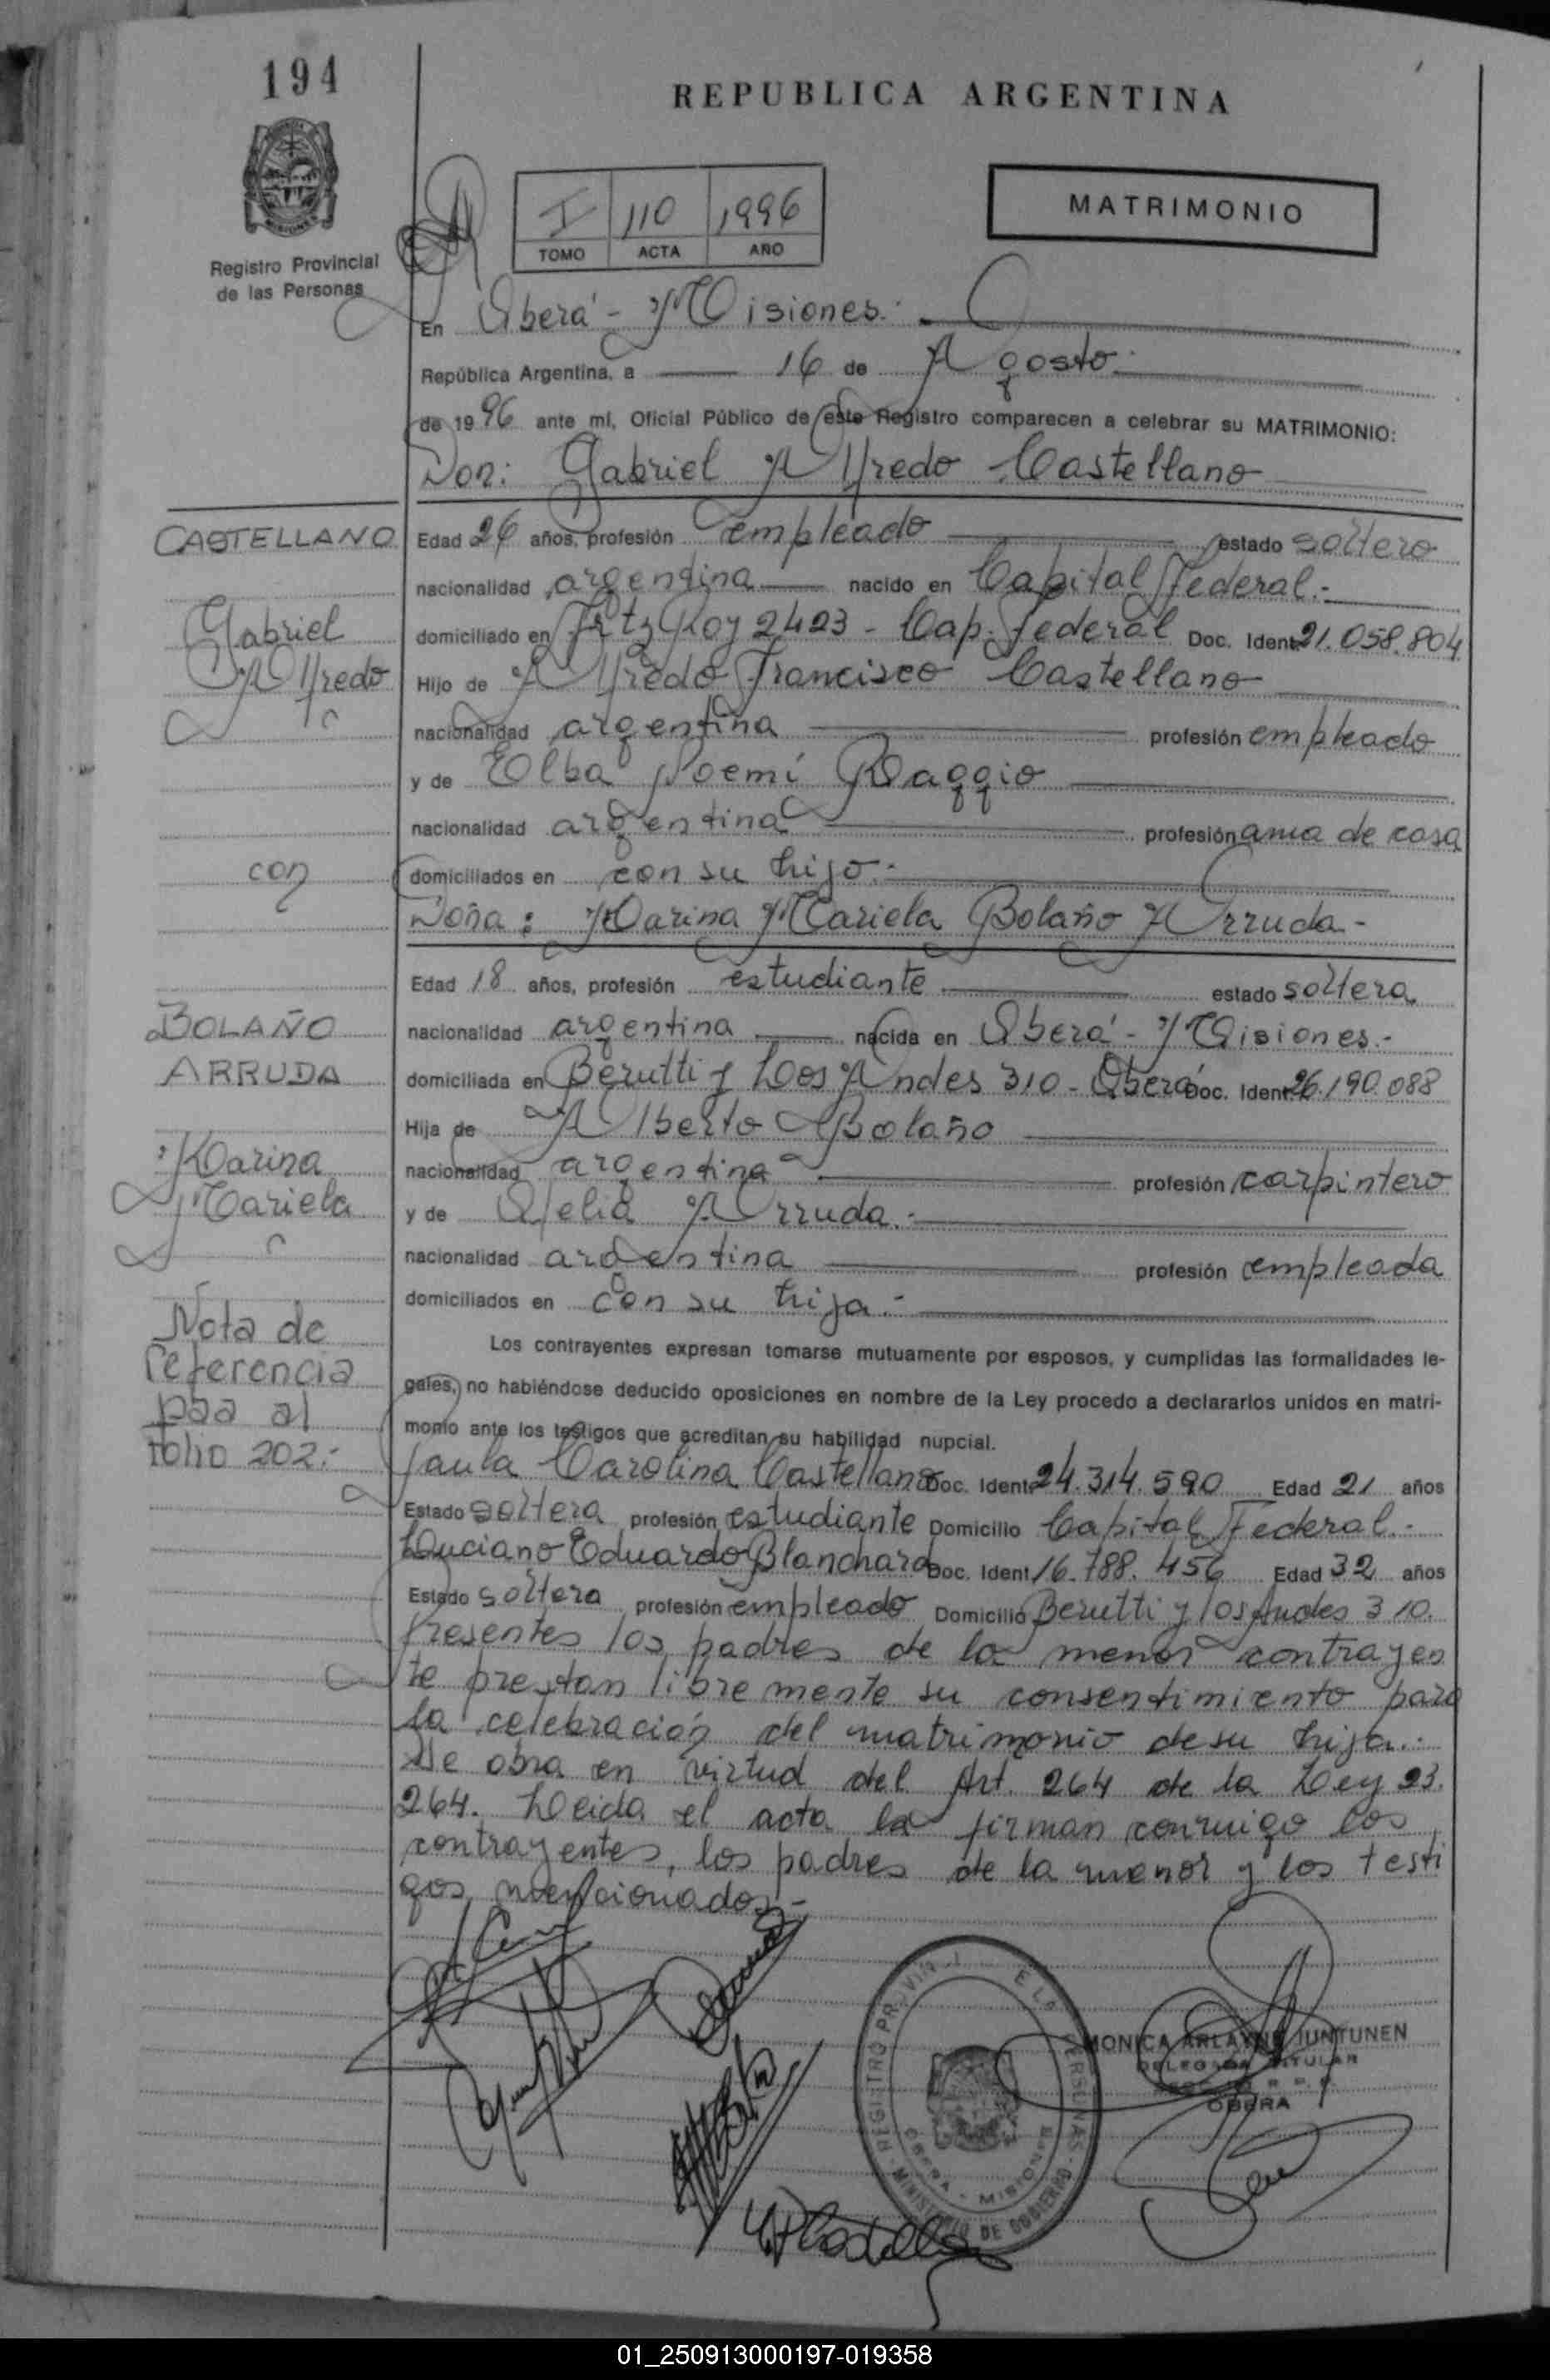 194
REPUBLICA ARGENTINA
Registro Provincial
de las Personas
I 110 1996
TOMO ACTA AÑO
MATRIMONIO
En Oberá - Misiones.-
República Argentina, a 16 de Agosto.-
de 1996 ante mí, Oficial Público de este Registro comparecen a celebrar su MATRIMONIO:
Don: Gabriel Alfredo Castellano
CASTELLANO
Gabriel
Alfredo
c
con
BOLAÑO
ARRUDA
Marina
Mariela
c
Nota de
referencia
pasa al
folio 202.-
Edad 26 años, profesión empleado estado soltero
nacionalidad argentina nacido en Capital Federal.-
domiciliado en Fitz Roy 2423 - Cap. Federal Doc. Ident. 21.058.804
Hijo de Alfredo Francisco Castellano
nacionalidad argentina profesión empleado
y de Elba Noemí Raggio
nacionalidad argentina profesión ama de casa
domiciliados en con su hijo.-
Doña: Marina Mariela Bolaño Arruda.-
Edad 18 años, profesión estudiante estado soltera
nacionalidad argentina nacida en Oberá - Misiones.-
domiciliada en Berutti y Los Andes 310 - Oberá Doc. Ident. 26.190.088
Hija de Alberto Bolaño
nacionalidad argentina profesión carpintero
y de Ofelia Arruda.-
nacionalidad argentina profesión empleada
domiciliados en con su hija.-
Los contrayentes expresan tomarse mutuamente por esposos, y cumplidas las formalidades le-
gales, no habiéndose deducido oposiciones en nombre de la Ley procedo a declararlos unidos en matri-
monio ante los testigos que acreditan su habilidad nupcial.
Paula Carolina Castellano Doc. Ident. 24.314.590 Edad 21 años
Estado soltera profesión estudiante Domicilio Capital Federal.-
Luciano Eduardo Blanchard Doc. Ident. 16.788.456 Edad 32 años
Estado soltero profesión empleado Domicilio Berutti y los Andes 310.
Presentes los padres de la menor contrayen
te prestan libremente su consentimiento para
la celebración del matrimonio de su hija.-
Se obra en virtud del Art. 264 de la Ley 23.
264. Leida el acta la firman conmigo los
contrayentes, los padres de la menor y los testi
gos mencionados.-
REGISTRO PROVINCIAL DE LAS PERSONAS - MINISTERIO DE GOBIERNO
OBERA - MISIONES
MONICA ARLAYNE JUNTUNEN
DELEGADA TITULAR
OBERA
01_250913000197-019358